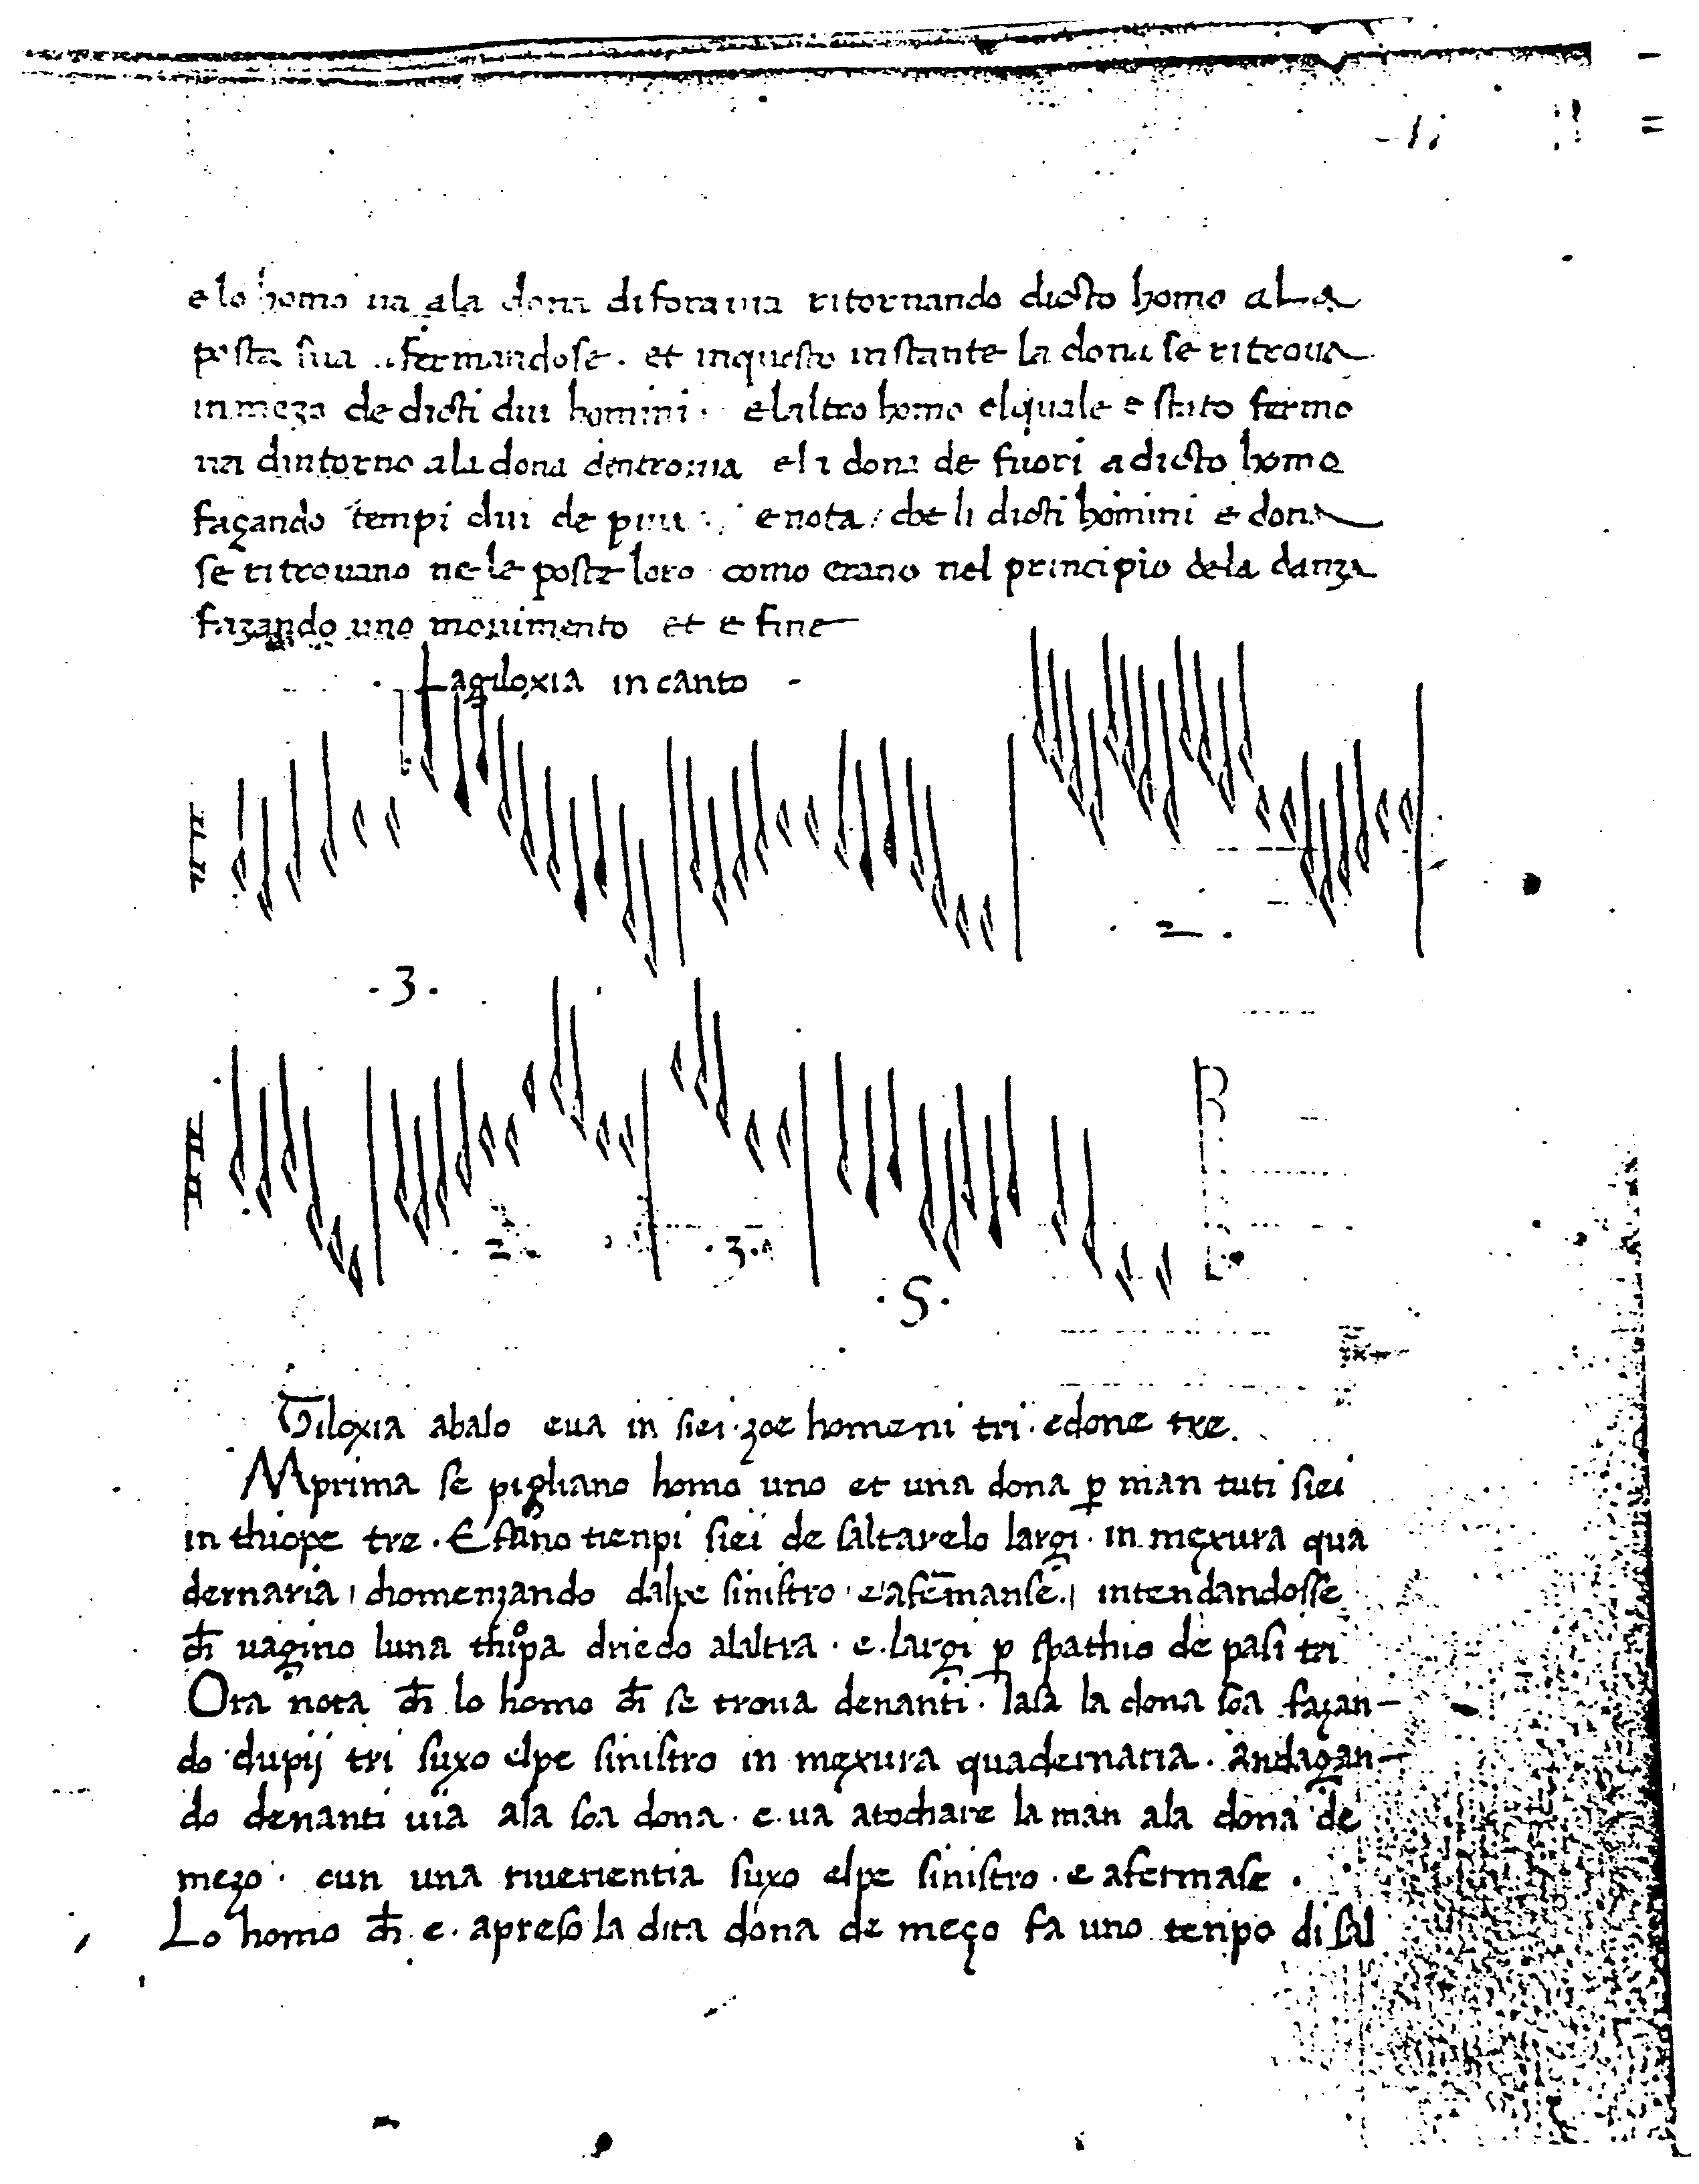 e lo homo va ala dona di fora via ritornando dicto homo ala
posta sua fermandose. et in questo instante la dona se ritrova
in mezo de dicti dui homini. e laltro homo el quale e stato fermo
va dintorno ala dona dentro via e la dona de fuori a dicto homo
façando tempi dui de piva e nota che li dicti homini e dona
se ritrovano ne le poste loro como erano nel principio de la danza
fazando uno movimento et e fine
La giloxia in canto
.2.
.3.
.2.
.3.
.5.
Giloxia abalo eva in siei. zoe homeni tri. e done tre.
Mprima se pigliano homo uno et una dona p̱ man tuti siei
in thiope tre. E fano tienpi siei de saltarelo largi. in mexura qua
dernaria, chomenzando dalpe sinistro. e afer̄manse. intendandosse
ch̄ vagino luna thiopa driedo alaltra. e. largi p̱ spathio de pasi tri
Ora nota ch̄ lo homo ch̄ se trova denanti. lasa la dona soa fazan-
do dupij tri suxo elpe sinistro in mexura quadernaria. andagan-
do denanti via ala soa dona. e. va atochare la man ala dona de
mezo. cun una riverientia suxo elpe sinistro. e afermase.
Lo homo ch̄. e. apreso la dita dona de meço fa uno tenpo di sal